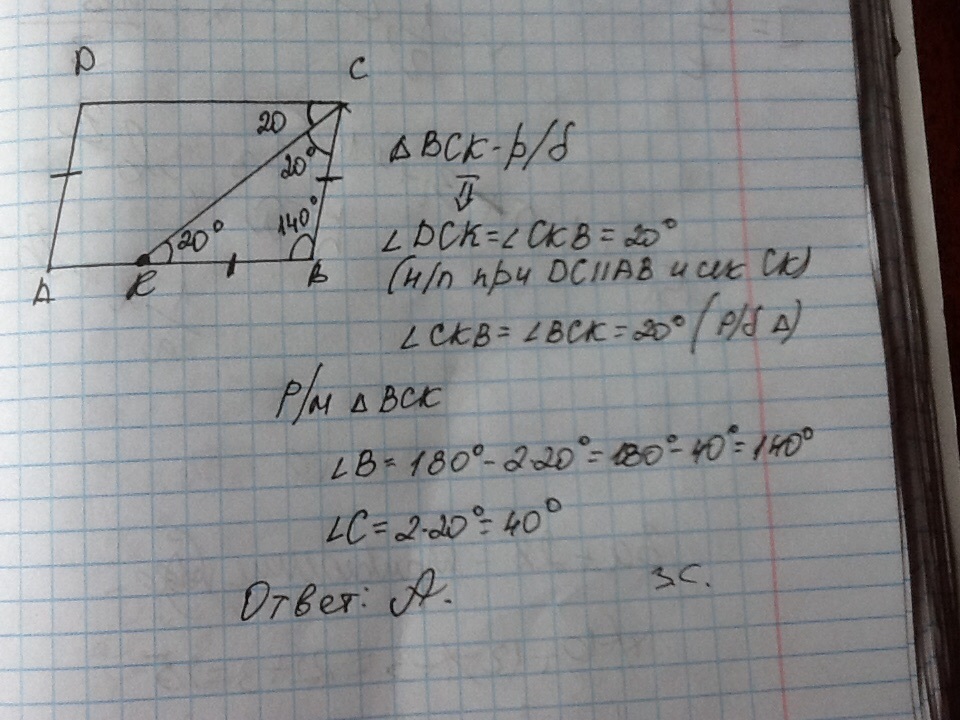 D C
20
20°
20° 140°
A K B
△ BCK - р/б
⇓
∠DCK = ∠CKB = 20°
(н/л при DC || AB и сек CK)
∠CKB = ∠BCK = 20° (р/б △)
Р/м △ BCK
∠B = 180° - 2·20° = 180° - 40° = 140°
∠C = 2·20° = 40°
Ответ: А.
З.С.